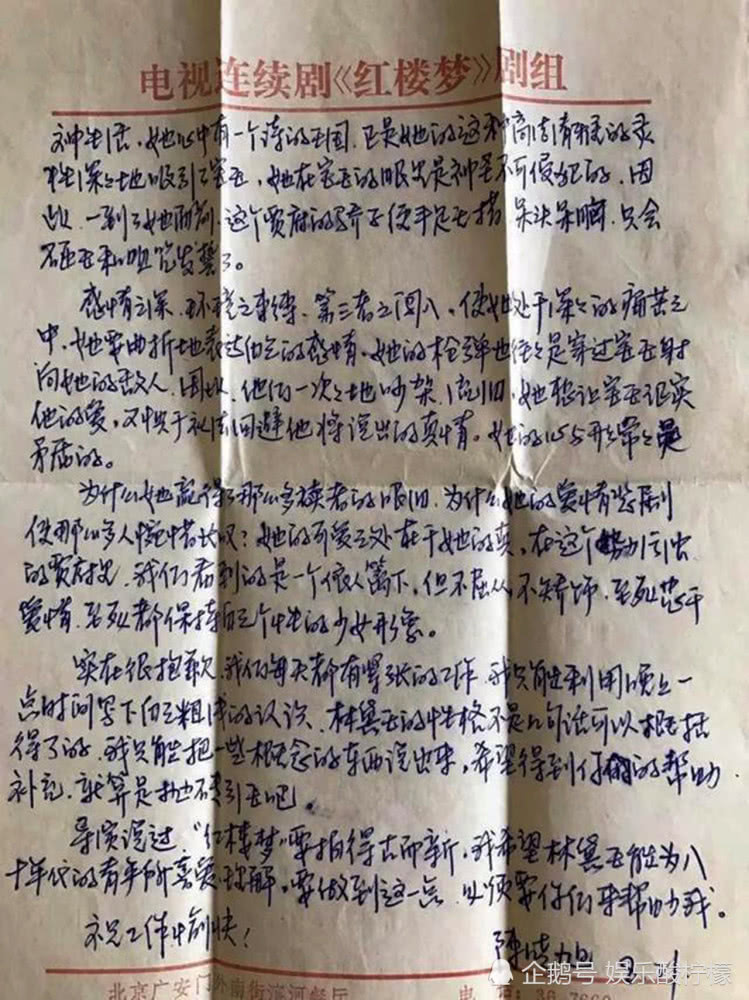 电视连续剧《红楼梦》剧组
神生活，她心中有一个诗的王国，正是她的这种高洁清雅的灵
性深深地吸引了宝玉，她在宝玉的眼里是神圣不可侵犯的，因
此，一到了她面前，这个贾府的骄子便手足无措，呆头呆脑，只会
发誓了。
感情之深，环境之束缚，第三者之闯入，使她处于深深的痛苦之
中，她要曲折地表达自己的感情，她的枪弹也往往是穿过宝玉射
向她的敌人，因此，他们一次次地吵架，流泪，她想让宝玉证实
他的爱，又惧于礼法回避他将说出的真情。她的心与形常常是
矛盾的。
为什么她赢得了那么多读者的眼泪，为什么她的爱情悲剧
使那么多人惋惜长叹？她的可爱之处在于她的真，在这个
的贾府里，我们看到的是一个依人篱下，但不屈从，不矫饰，至死忠于
爱情，至死都保持自己个性的少女形象。
实在很抱歉，我们每天都有紧张的工作，我只能利用晚上一
点时间写下自己粗浅的认识，林黛玉的性格不是几句话可以概括
得了的，我只能把一些概念的东西说出来，希望得到你们的帮助
补充，就算是抛砖引玉吧。
导演说过，“红楼梦”要拍得古而新，我希望林黛玉能为八
十年代的青年所喜爱、理解。要做到这一点，必须要你们来帮助我。
祝工作愉快！
陈晓旭
北京广安门外南街滨河餐厅
企鹅号 娱乐酸柠檬